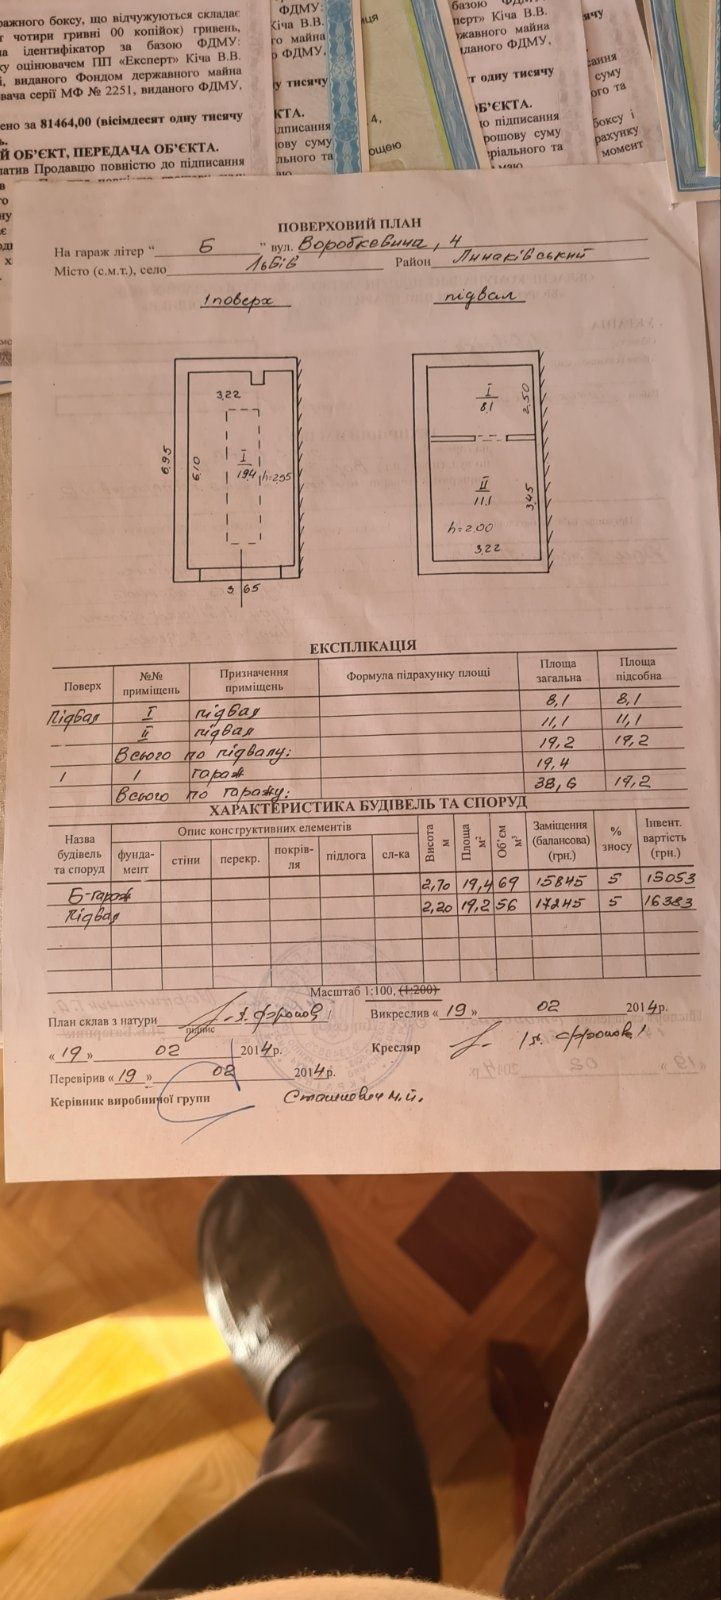 ражного боксу, що відчужуються складає
чотири гривні 00 копійок) гривень,
ідентифікатор за базою ФДМУ:
ку оцінювачем ПП «Експерт» Кіча В.В.
і, виданого Фондом державного майна
вача серії МФ № 2251, виданого ФДМУ,
ено за 81464,00 (вісімдесят одну тисячу
Й ОБ'ЄКТ, ПЕРЕДАЧА ОБ'ЄКТА.
атив Продавцю повністю до підписання
ФДМУ:
Кіча В.В.
го майна
ФДМУ,
у тисячу
КТА.
дписання
ову суму
льного та
4,
ощею
базою ФДМУ
перт» Кіча В.В.
жавного майна
иданого ФДМУ,
т одну тисячу
Б'ЄКТА.
до підписання
рошову суму
ріального та
суму
ого та
боксу і
рахунку
момент
ПОВЕРХОВИЙ ПЛАН
На гараж літер "Б" вул. Воробкевича, 4
Місто (с.м.т.), село Львів Район Личаківський
1 поверх підвал
3,22
6,95
6,10
I
19,4
h=2,95
3,65
I
8,1
2,50
II
11,1
3,45
h=2.00
3,22
ЕКСПЛІКАЦІЯ
Поверх №№ приміщень Призначення приміщень Формула підрахунку площі Площа загальна Площа підсобна
Підвал I підвал 8,1 8,1
II підвал 11,1 11,1
Всього по підвалу: 19,2 19,2
1 1 гараж 19,4
Всього по гаражу: 38,6 19,2
ХАРАКТЕРИСТИКА БУДІВЕЛЬ ТА СПОРУД
Назва будівель та споруд Опис конструктивних елементів Висота м Площа м² Об'єм м³ Заміщення (балансова) (грн.) % зносу Інвент. вартість (грн.)
фундамент стіни перекр. покрівля підлога сл-ка
Б-гараж 2,70 19,4 69 15845 5 15053
Підвал 2,20 19,2 56 17245 5 16383
Масштаб 1:100, (1:200)
План склав з натури Викреслив «19» 02 2014р.
підпис
«19» 02 2014р. Кресляр
Перевірив «19» 02 2014р.
Керівник виробничої групи